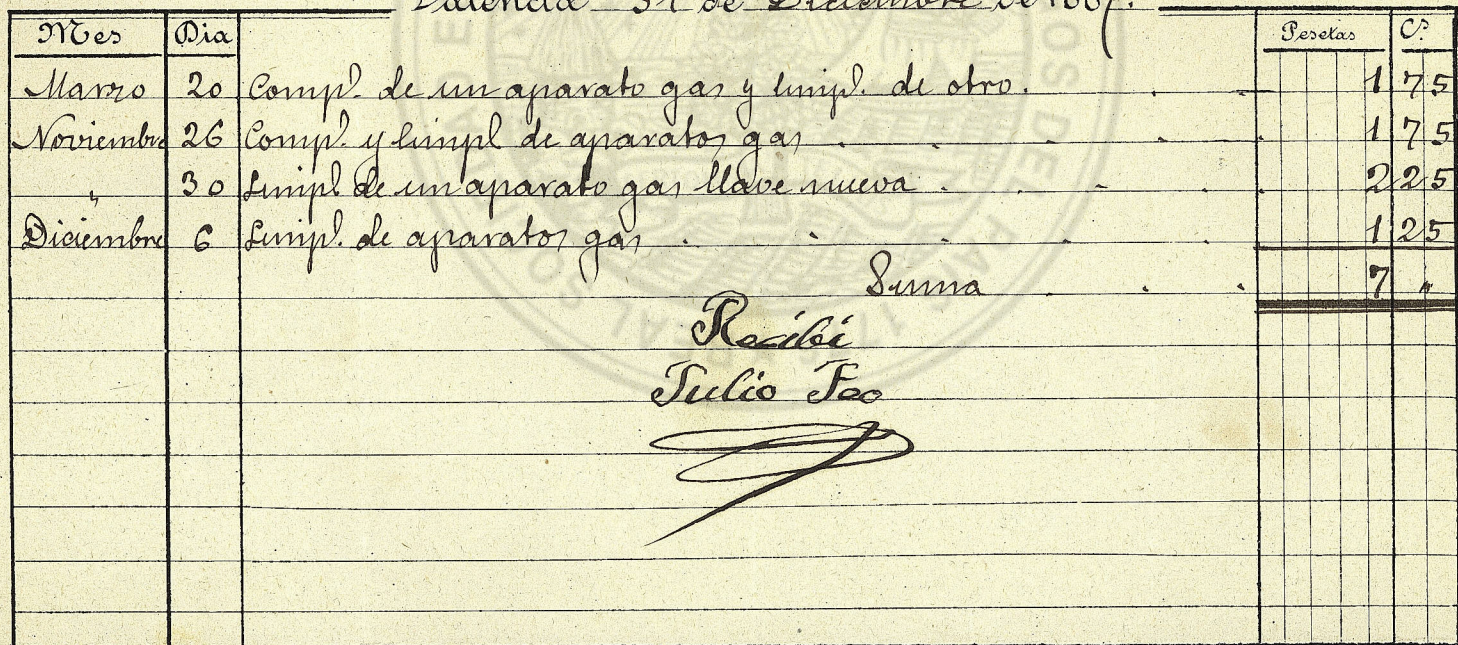 Valencia 31 de Diciembre de 1887.
Mes Dia Pesetas C.s
Marzo 20 Compl. de un aparato gas y limpl. de otro. 1 75
Noviembre 26 Compl. y limpl de aparatos gas 1 75
" 30 Limpl de un aparato gas llave nueva 2 25
Diciembre 6 Limpl. de aparatos gas 1 25
Suma 7 "
Recibí
Tulio Feo